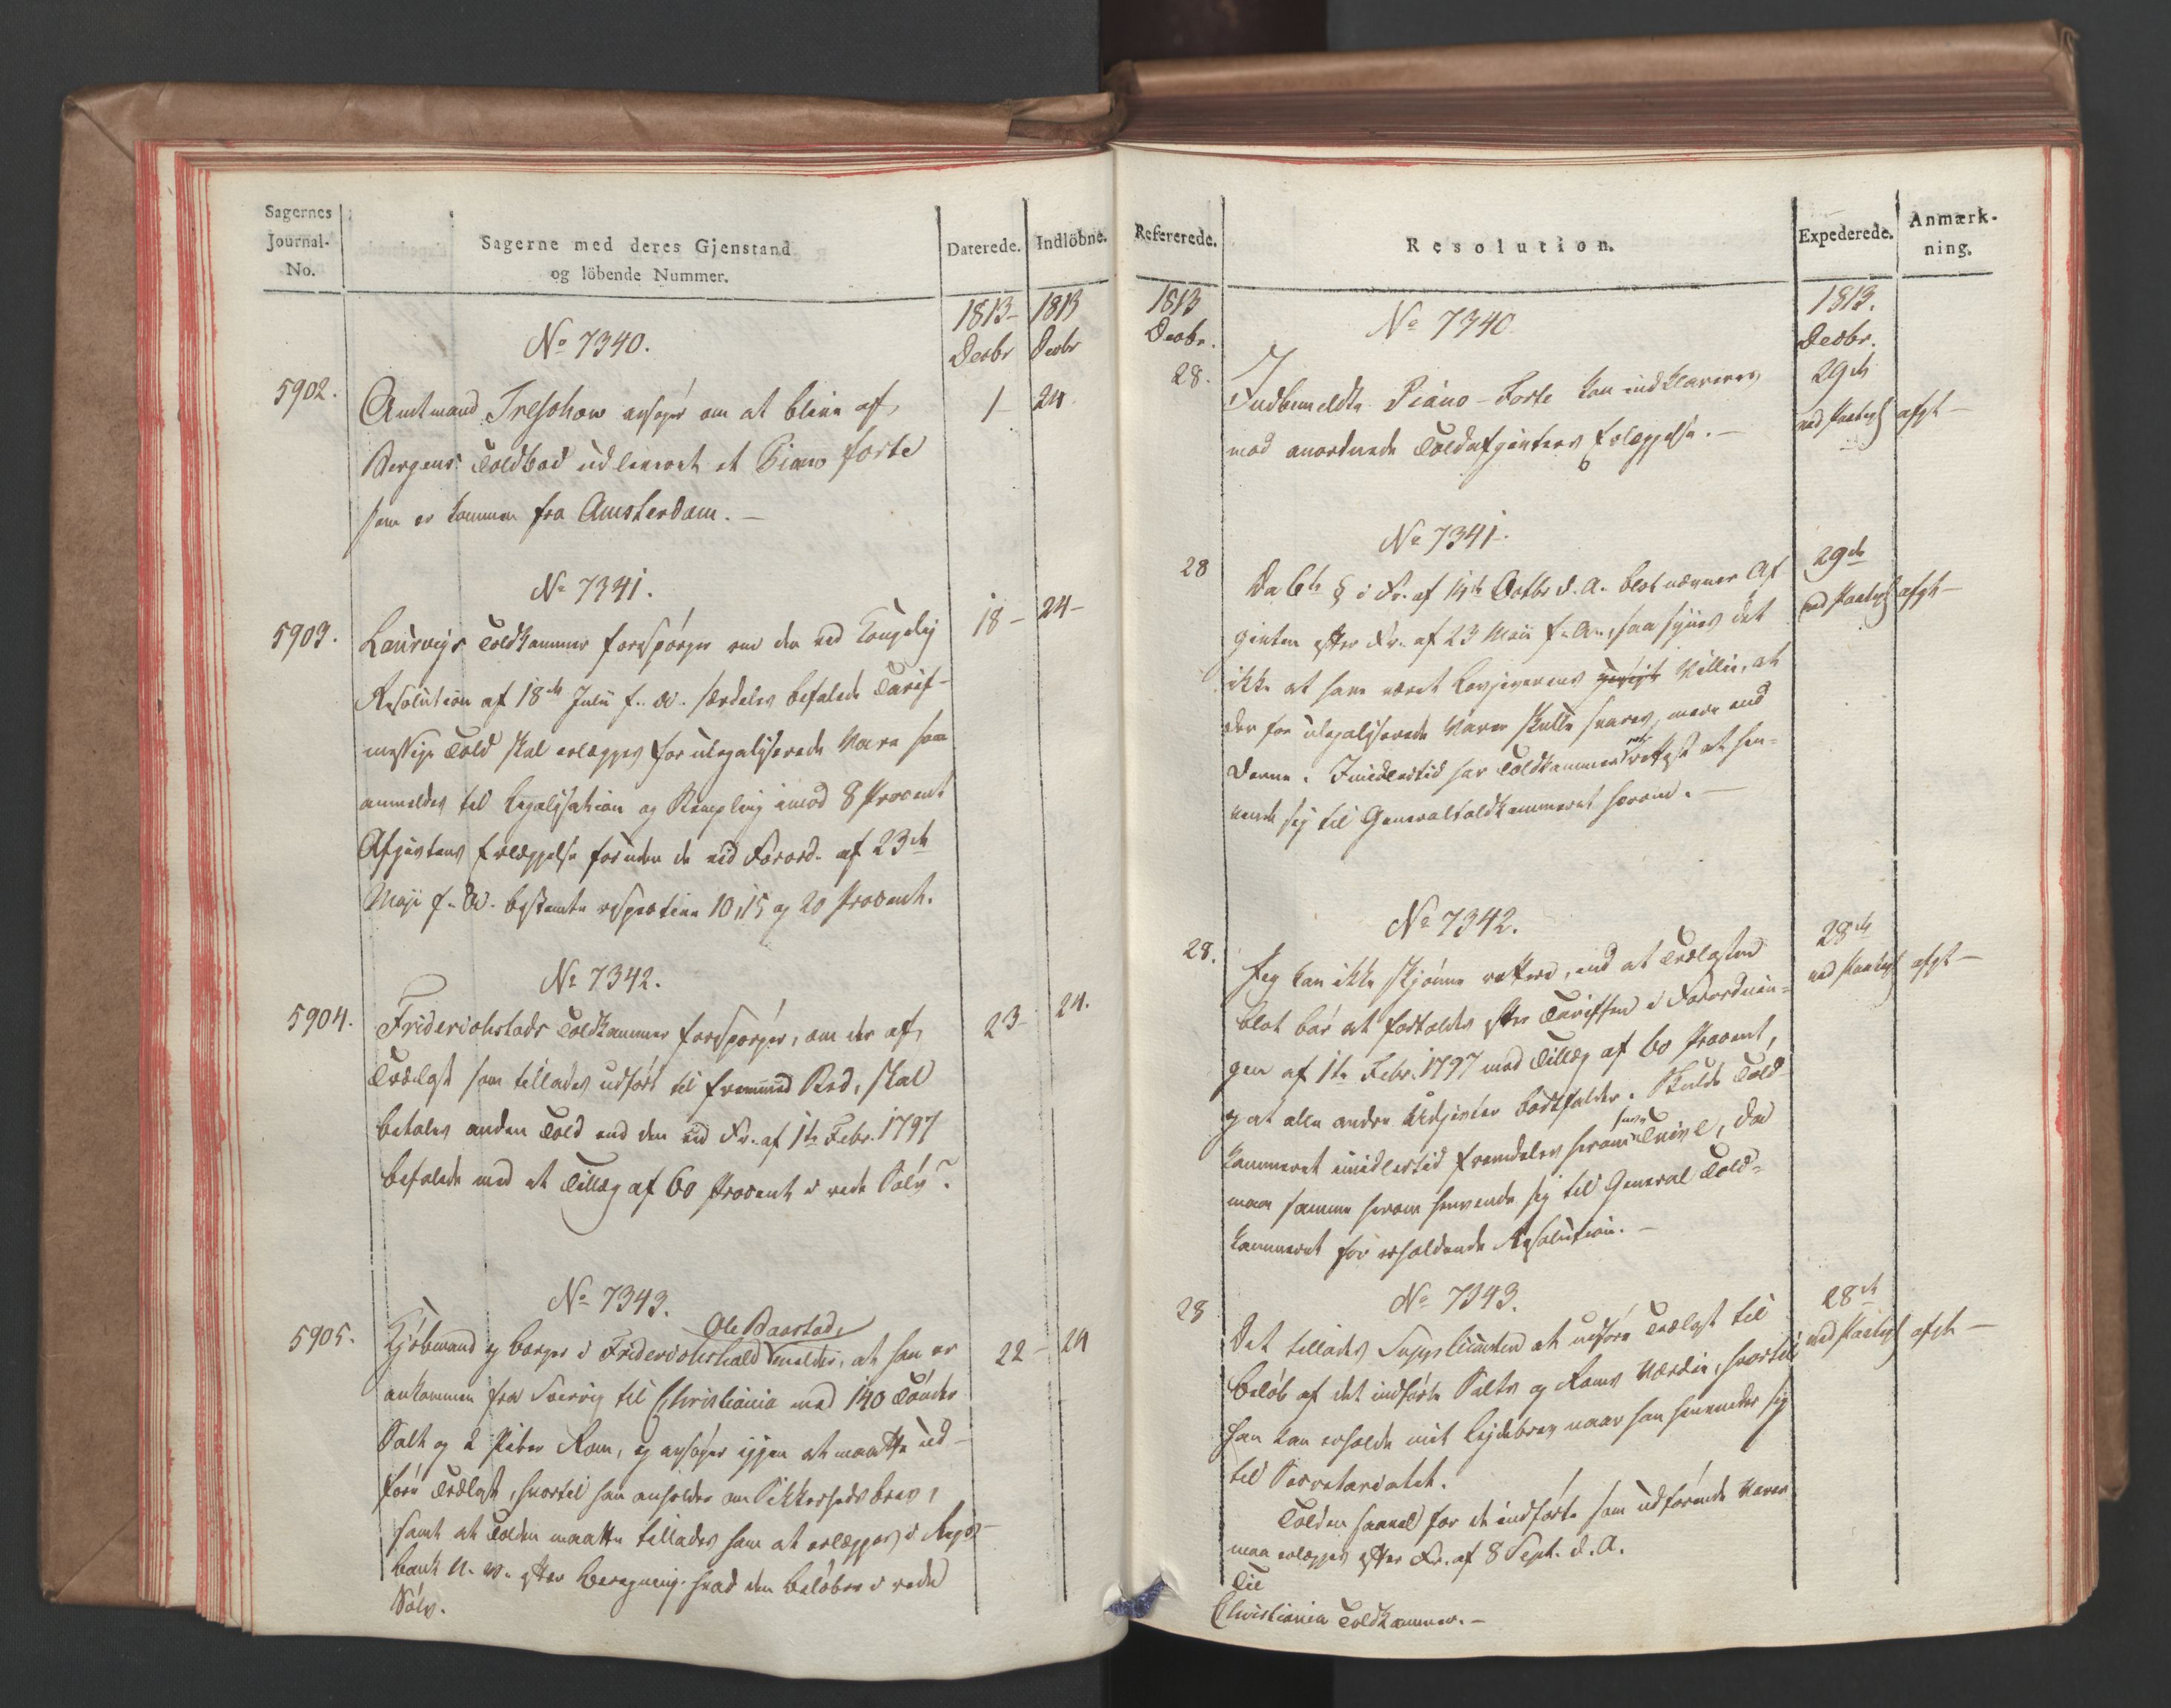 Sagernes
Journal-
No.
Sagerne med deres Gjenstand
og löbende Nummer.
Daterede.
Indlöbne.
1813-
Decbr
1813
Decbr
No 7340.
5902.
Amtmand Treschow ansøger om at blive af
1-
24
Bergens Toldbod udleveret et Piano forte
som er kommen fra Amsterdam. —
No 7341.
5903.
Laurvigs Toldkammer forespørger om den ved Kongelig
18-
24-
Resolution af 18de Julii f. A. særdeles befalede Tarif-
messige Told skal erlægges for ulegaliserede Vare som
anmeldes til Legalisation og Stempling imod 8 Procent
Afgiftens Erlæggelse foruden de ved Forord. af 23de
Maji f. A. bestemte respective 10, 15 og 20 Procent.
No 7342.
5904.
Friderichstads Toldkammer forespørger, om der af
23-
24.
Trælast som tillades udført til fremmed Sted, skal
betales anden Told end den ved Fr. af 1te Febr. 1797
befalede med et Tillæg af 60 Procent i rede Sølv?
No 7343.
Ole Baastad
5905.
Kjøbmand og borger i Friderichshald melder, at han er
22-
24
ankommen fra Leervig til Christiania med 140 Tønder
Salt og 2 Piber Rom, og ansøger igjen at maatte ud-
føre Trælast, hvortil han anholder om Sikkerhedsbrev,
samt at Tolden maatte tillades ham at erlægges i Rigs-
bank N. V. efter Beregning hvad den beløber i rede
Sølv.
Refererede.
Resolution.
Expederede.
Anmærk-
ning.
1813
Decbr.
1813.
Decbr.
No 7340
28.
Indbemeldte Piano-Forte kan indklareres
29de
mod anordnede Toldafgivters Erlæggelse. —
afgk —
No 7341.
28
Da 6te § i Fr. af 14de Octbr d. A. blot nævner Af
29de
afgk —
giften efter Fr. af 23 Maii f. A., saa synes det
ikke at have været Lovgiverens Villie, at
der for ulegaliserede Varer skulle svares mere end
denne. Imidlertid har Toldkammeret rettest at hen-
vende sig til Generaltoldkammeret herom. —
No 7342.
28.
Jeg kan ikke skjønne rettere, end at Trælasten
28de
afgk —
blot bør at fortoldes efter Tariffen i Forordnin-
gen af 1te Febr. 1797 med Tillæg af 60 Procent,
og at alle andre Udgivter bortfalder. Skulde Told-
kammeret imidlertid fremdeles herom have Tvivl, da
maa samme herom henvende sig til General Told-
kammeret for erholdende Resolution. —
No 7343.
28
Det tillades Supplicanten at udføre Trælast til
28de
afgk —
Beløb af det indførte Salts og Roms Værdie, hvortil
han kan erholde mit Leydebrev naar han henvender sig
til Secretariatet.
Tolden saavel for de indførte som udførende Varer
maa erlægges efter Fr. af 8 Sept. d. A.
Til
Christiania Toldkammer. —